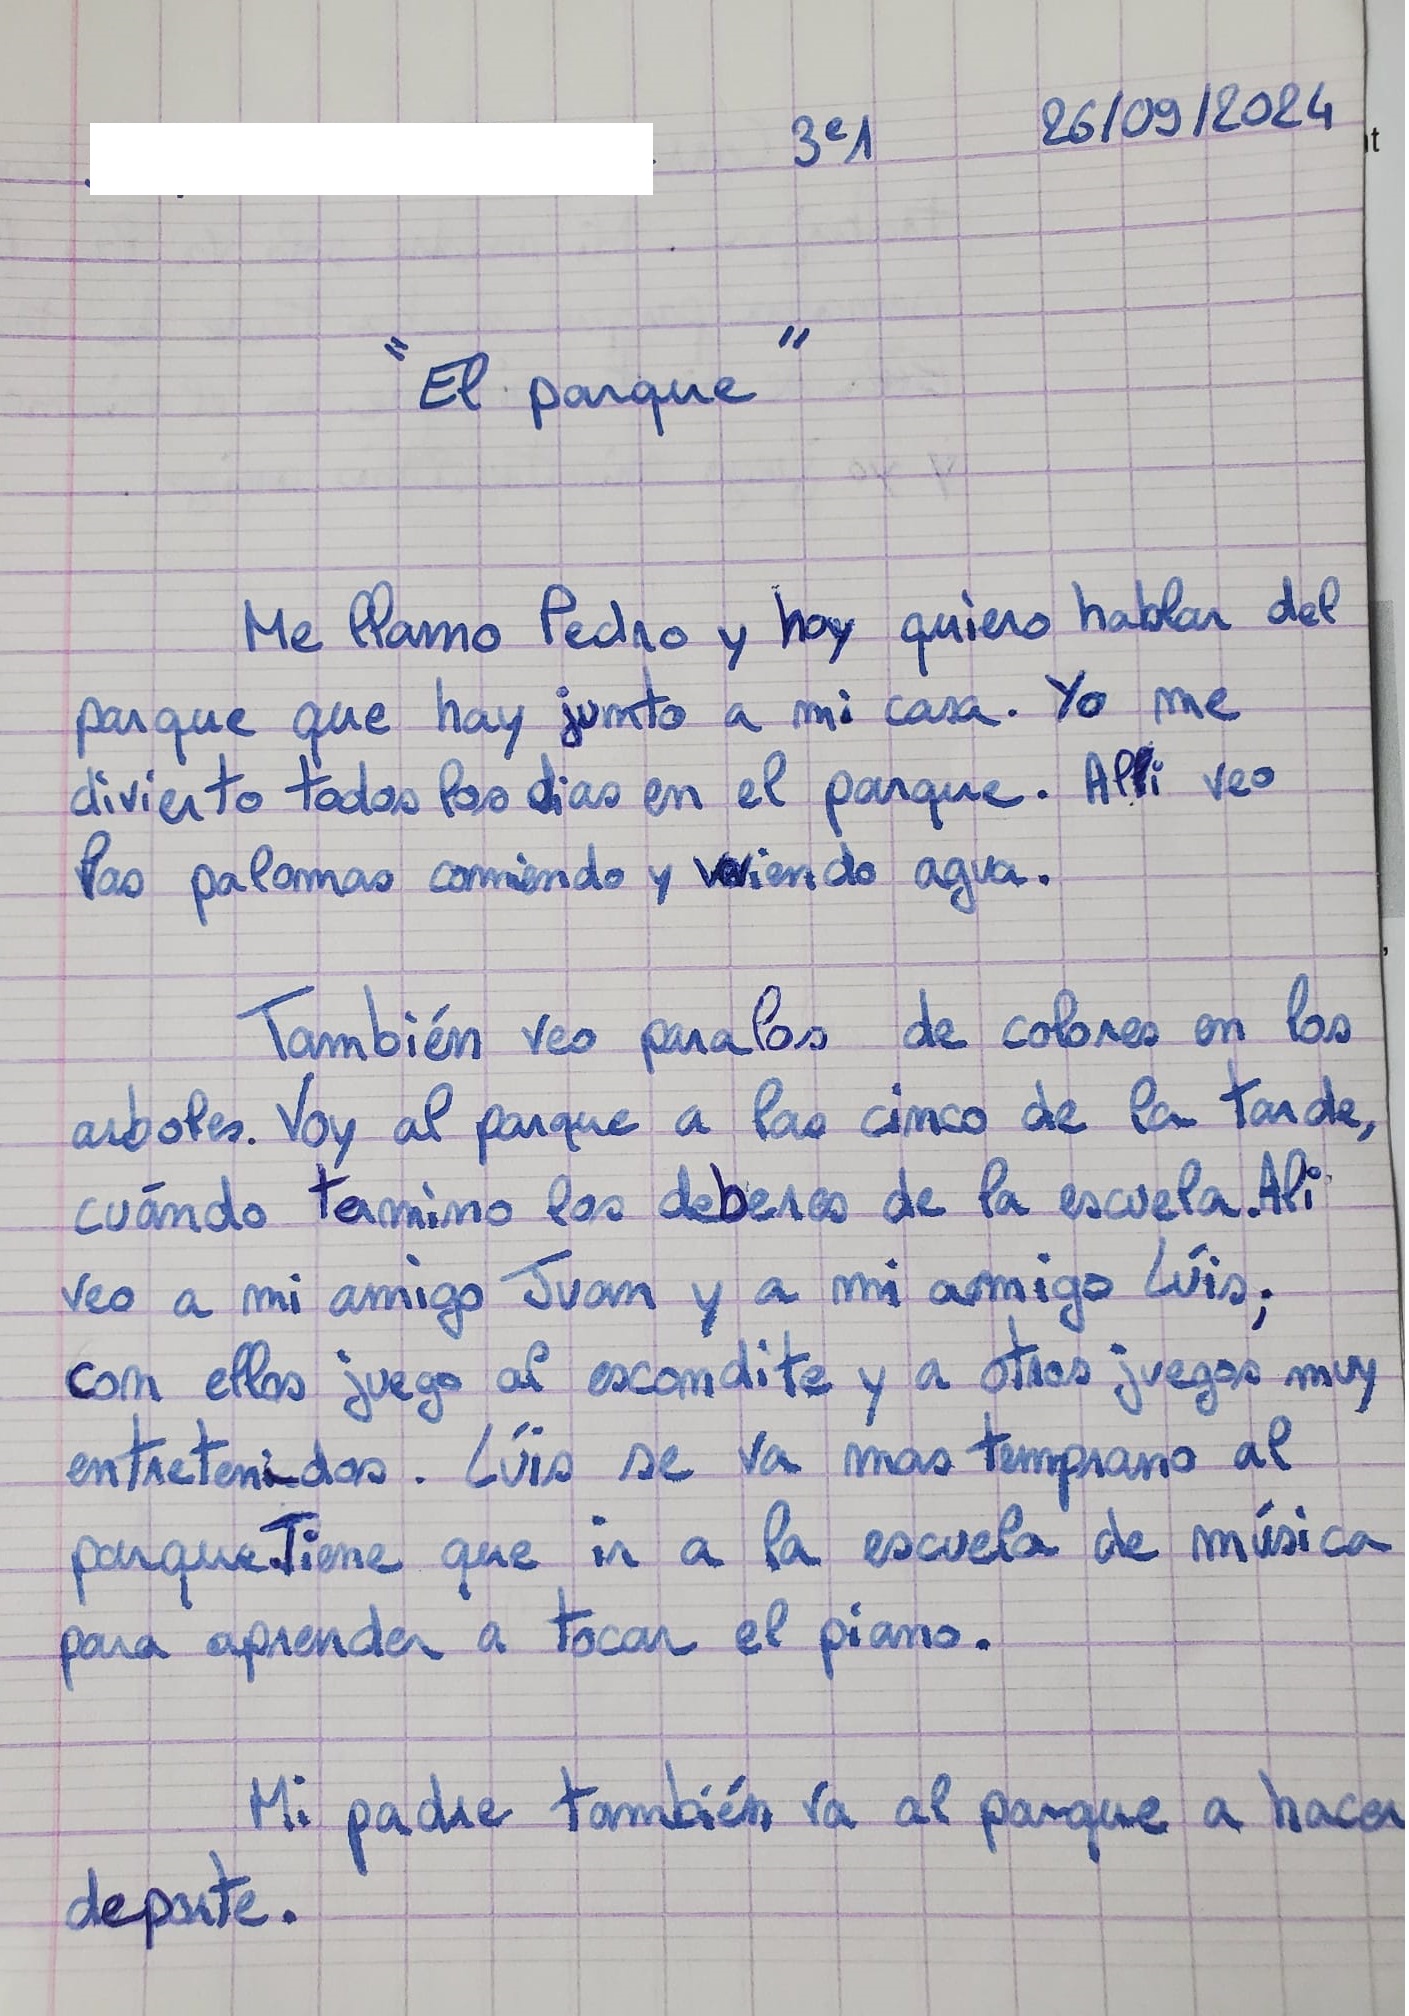 3e1 26/09/2024
"El parque"
Me llamo Pedro y hoy quiero hablar del
parque que hay junto a mi casa. Yo me
divierto todos los dias en el parque. Alli veo
las palomas comiendo y viendo agua.
También veo paralos de colores en los
arboles. Voy al parque a las cinco de la tarde,
cuándo termino los deberes de la escuela. Ali
veo a mi amigo Juan y a mi amigo Lúis;
con ellos juego al escondite y a otros juegos muy
entretenidos. Lúis se va mas temprano al
parque. Tiene que ir a la escuela de música
para aprender a tocar el piano.
Mi padre también va al parque a hacer
deporte.